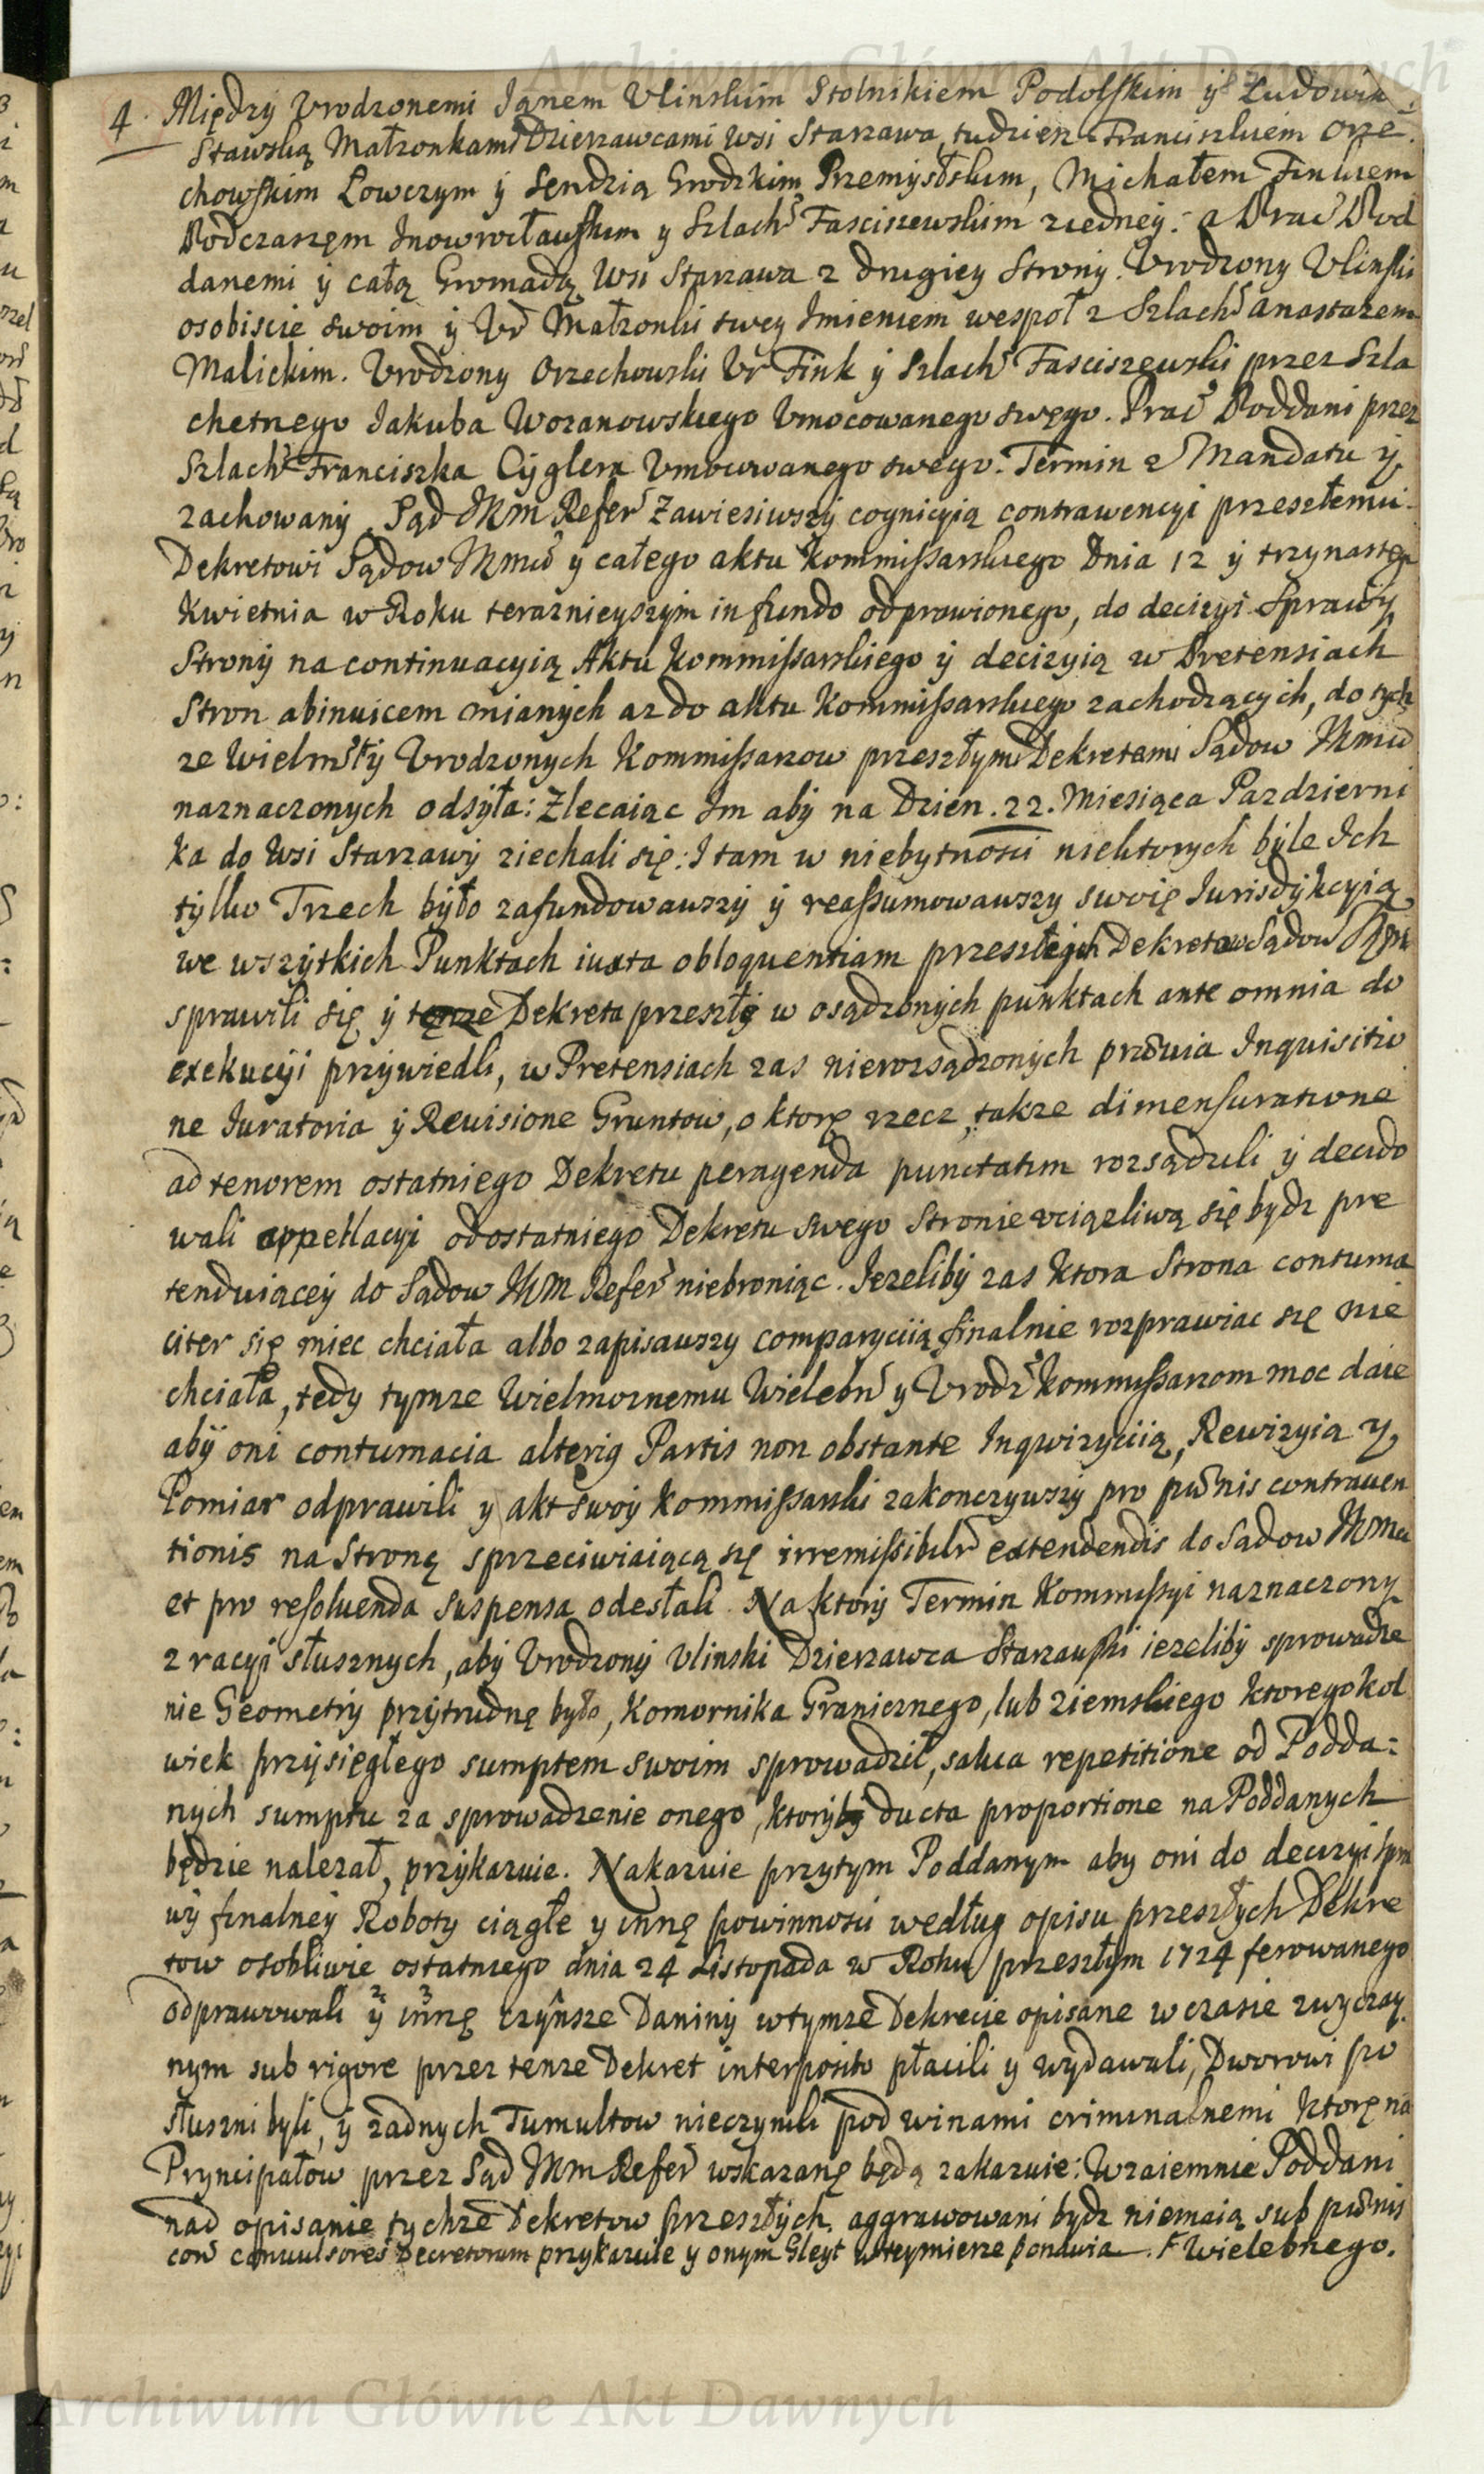 Archiwum Główne Akt Dawnych
4. Między Vrodzonemi Janem Vlinskim Stolnikiem Podolskim ÿ Ludowiką
Stawską Małzonkami Dzierzawcami Wsi Starzawa, tudziez Franciszkiem Orze
chowskim Łowczym ÿ Sendzią Grodzkim Przemyslskim, Michałem Finkiem
Podczaszęm Inowrocławskim y Szlach Fasciszewskim z iedneÿ: a Prac Pod
danemi ÿ całą Gromadą Wsi Starzawa z drugiey Strony. Vrodzony Vlinski
osobiscie swoim ÿ Vr Małzonki swey Imieniem wespoł z Szlach Anastazem
Malickim. Vrodzony Orzechowski Vr Fink ÿ Szlach Fasciszewski przez Szla
chetnego Jakuba Wozanowskiego Vmocowanego swęgo. Prac Poddani przez
Szlach Franciszka Cÿglera Vmocowanego swego. Termin z Mandatu ÿ
zachowanÿ. Sąd JKM Refer Zawiesiwszÿ cognicÿią contrawencyi przeszłemu
Dekretowi Sądow JKMci ÿ całego aktu Kommissarskiego Dnia 12 ÿ trzynastego
Kwietnia w Roku teraznieyszÿm in fundo odprawionego, do decizyi Sprawÿ
Stronÿ na continuacyią Aktu Kommissarskiego ÿ decizyią w Pretensiach
Stron abinuicem mianych az do aktu Kommissarskiego zachodzącÿch, do tych
ze Wielm Vrodzonych Kommissarzow przeszłymi Dekretami Sądow JKMci
naznaczonych odsÿła: Zlecaiąc Im abÿ na Dzien .22. Miesiąca Pazdzierni
ka do Wsi Starzawÿ ziechali się: I tam w niebytnosci niektorych bÿle Ich
tÿlko Trzech bÿło zafundowawszÿ ÿ reassumowawszy swoię Iurisdÿkcyią
we wszÿtkich Punktach iuxta obloquentiam przeszłych Dekretow Sądow JKM
sprawili się ÿ Dekreta przeszłe w osądzonych punktach ante omnia do
exekucÿi przÿwiedli, w Pretensiach zas nierozsądzonÿch prævia Inquisitio
ne Iuratoria ÿ Reuisione Gruntow, o ktorę rzecz, takze dimensuratione
ad tenorem ostatniego Dekretu peragenda punctatim rozsądzili ÿ decido
wali appellacyi od ostatniego Dekretu swego Stronie vciązliwą się bydz pre
tenduiąceÿ do Sądow JKM Refer niebroniąc. Jezelibÿ zas ktora Strona contuma
citer się miec chciała albo zapisawszy comparyciią finalnie rozprawiac się nie
chciała, tedy tymze Wielmoznemu Wielebn y Vrodz Kommissarzom moc daie
abÿ oni contumacia alterig Partis non obstante Inqwizyciią, Rewizyią y
Pomiar odprawili y akt swoÿ Kommissarski zakonczywszÿ pro pœnis contrauen
tionis na Stronę sprzeciwiaiącą się irremissibilr extendendis do Sądow JKMci
et pro resoluenda suspensa odesłali. Na ktorÿ Termin Kommissyi naznaczony
z racyi słusznych, aby Vrodzonÿ Vlinski Dzierzawca Starzawski iezelibÿ sprowadze
nie Geometrÿ przÿtrudnę było, Komornika Granicznego, lub ziemskiego ktoregokol
wiek przÿsięgłego sumptem swoim sprowadził, salua repetitione od Podda:
nych sumptu za sprowadzenie onego, ktorÿ ducta proportione na Poddanych
będzie nalezał, przÿkazuie. Nakazuie przytym Poddanym aby oni do decizyi spra
wÿ finalneÿ Roboty ciągłe y innę powinnosci według opisu przeszłych Dekre
tow osobliwie ostatniego dnia 24 Listopada w Roku przeszłym 1724 ferowanego
odprawowali ÿ innę czÿnsze Daninÿ w tymze Dekrecie opisane w czasie zwyczay
nym sub rigore przez tenze Dekret interposito płacili y wydawali, Dworowi po
słuszni byli, ÿ zadnych Tumultow nieczynili pod winami criminalnemi ktorę na
Pryncipałow przez Sąd JKM Refer wskazanę będą zakazuie: Wzaiemnie Poddani
nad opisanie tychze Dekretow przeszłÿch aggrawowani bydz niemaią sub pœnis
con conuulsores Decretorum przykazuie y onym Gleyt w teymierze ponawia. F Wielebnego.
Archiwum Główne Akt Dawnych